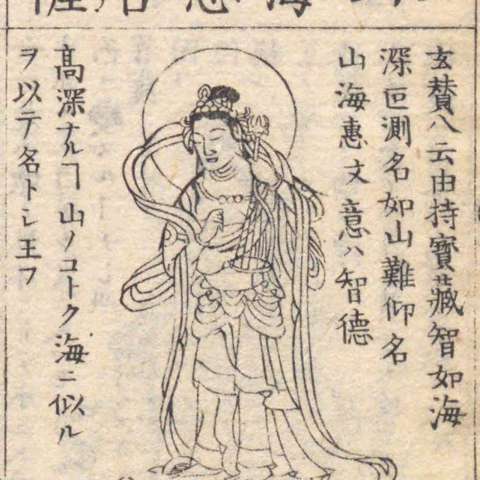 海
玄賛八云由持寶藏智如海
深叵測名如山難仰名
山海惠文意ハ智德
髙深ナルヿ山ノコトク海ニ似ル
ヲ以テ名トシ王フ